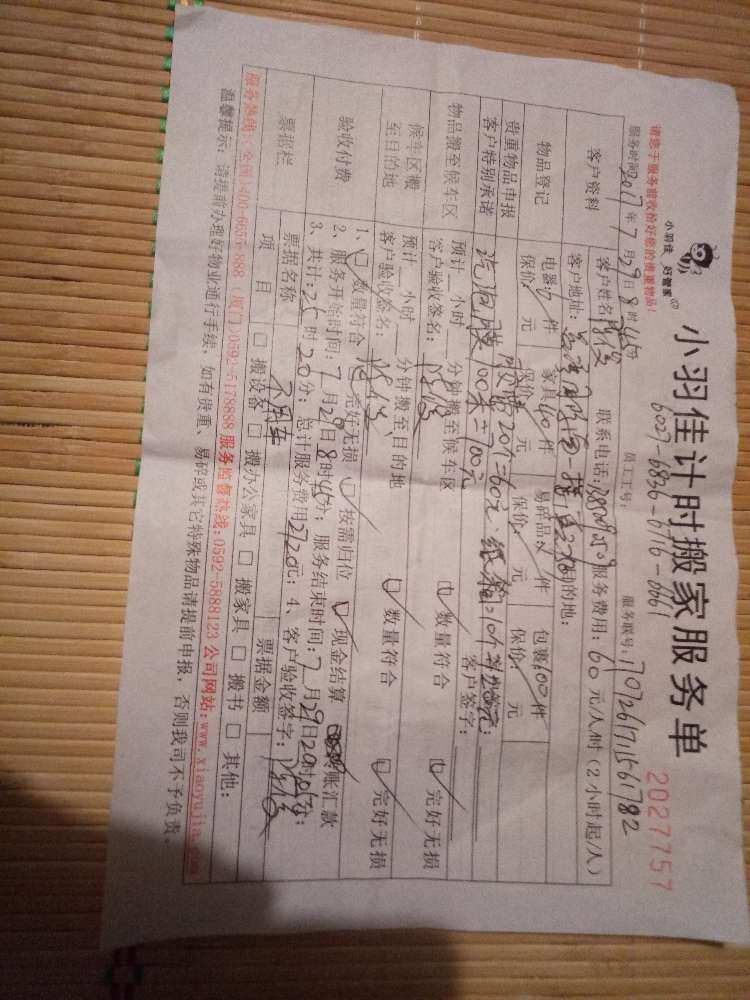 小羽佳 好管家
小羽佳计时搬家服务单
2027757
6027-6836-6116-0661
请您于服务前收拾好您的贵重物品!
员工工号:
服务联号: 170726171561782
服务时间: 2017年7月29日8时45分
客户资料
客户姓名
联系电话:
服务费用: 60元/人/时(2小时起/人)
客户地址:
目的地:
物品登记
电器: 件 家具40件 易碎品 件 包裹100件
贵重物品申报
保价 元 保价 元 保价 元 保价 元
客户特别承诺
胶带20个=60元
汽泡膜100米=700元
客户签字:
物品搬至候车区
预计__小时__分钟搬至候车区
数量符合 完好无损
客户验收签名:
候车区搬至目的地
预计__小时__分钟搬至目的地
数量符合 完好无损
客户验收签名:
验收付费
1、 数量符合 完好无损 按需归位 现金结算 转账汇款
2、服务开始时间: 7月29日8时45分; 服务结束时间: 7月29日20时 分;
3、共计: 时20分; 总计服务费用2720元; 4、客户验收签字:
票据栏
票据名称 票据金额
项目 搬设备 搬办公家具 搬家具 搬书 其他:
服务热线(全国)400-6655-888 (厦门)0592-5178888 服务监督热线: 0592-5888123 公司网站: www.xiaoyujia.com
温馨提示: 请提前办理好物业通行手续, 如有贵重、易碎或其它特殊物品请提前申报, 否则我司不予负责。